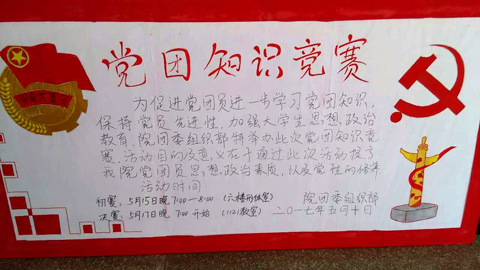 党团知识竞赛
为促进党团员进一步学习党团知识,
保持党员先进性,加强大学生思想,政治
教育,院团委组织部特举办此次党团知识竞
赛,活动目的及意义在于通过此次活动提了
我院党团员思想,政治素质,以及党性的培养
活动时间
初赛:5月15日晚7:00—8:00(六楼形体室)
决赛:5月17日晚7:00开始(1121教室)
院团委组织部
二〇一七年五月十日